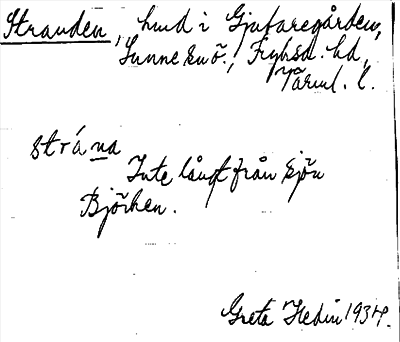 Stranden, hmd i Gjutaregården,
Sunne snö., Fryksd. hd,
Värml. l.
stránа
Inte långt från sjön
Björken.
Greta Hedin 1934.